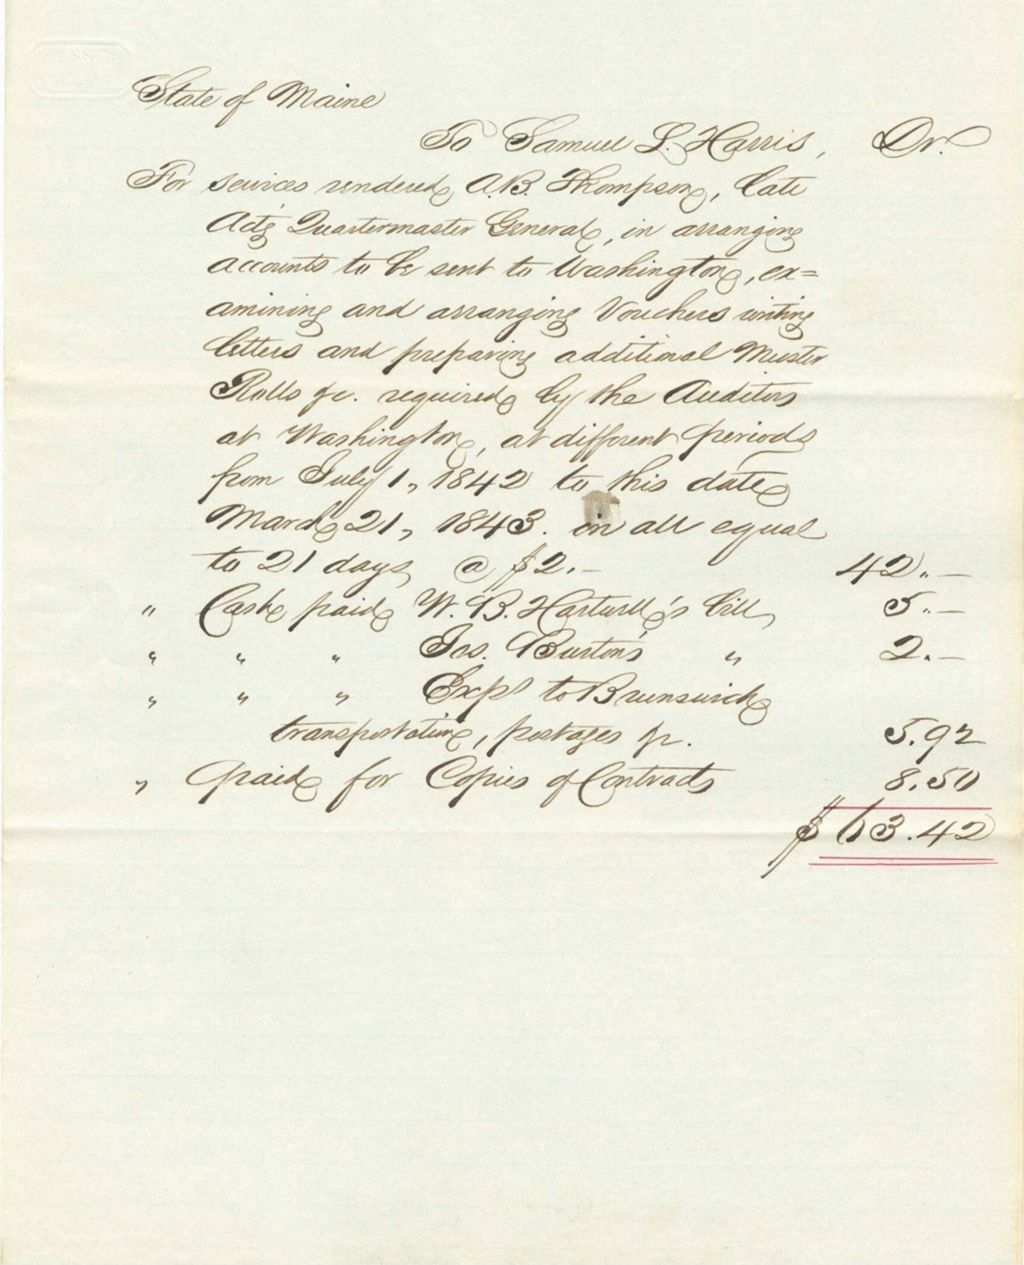 State of Maine
To Samuel L. Harris, Dr.
For services rendered A.B. Thompson, late
Actg Quartermaster General, in arranging
accounts to be sent to Washington, ex=
amining and arranging Vouchers writing
letters and preparing additional Muster
Rolls &c. required by the Auditors
at Washington, at different periods
from July 1, 1842 to this date
March 21, 1843. in all equal
to 21 days @ $2.— 42.—
" Cash paid W. B. Hartwell's bill, 5.—
" " " Jos. Burton's " 2.—
" " " Exps to Brunswick
transportation, postages &c. 5.92
" paid for Copies of Contracts 8.50
$ 63.42